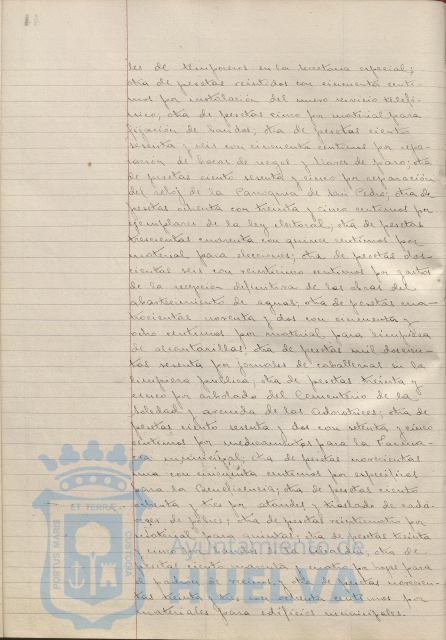 les de temporeros en la secretaria especial;
otra de pesetas veintidos con cincuenta centi-
mos por instalación del nuevo servicio telefó-
nico; otra de pesetas cinco por material para
fijación de bandos; otra de pesetas ciento
sesenta y seis con cincuenta centimos por repa-
ración de bocas de riego y llaves de paso; otra
de pesetas ciento sesenta y cinco por reparación
del reloj de la Parroquia de San Pedro; otra de
pesetas ochenta con treinta y cinco centimos por
ejemplares de la ley electoral; otra de pesetas
trescientas cuarenta con quince centimos por
material para elecciones; otra de pesetas dos-
cientas seis con veinticinco centimos por gastos
de la recepción definitiva de las obras del
abastecimiento de aguas; otra de pesetas cua-
trocientas noventa y dos con cincuenta y
ocho centimos por material para limpieza
de alcantarillas; otra de pesetas mil doscien-
tas sesenta por jornales de caballerias en la
limpieza publica; otra de pesetas treinta y
cinco por arbolado del Cementerio de la
Soledad y avenida de las Adoratrices; otra de
pesetas ciento sesenta y dos con setenta y cinco
centimos por medicamentos para la Farma-
cia municipal; otra de pesetas novecientas
una con cincuenta centimos por especificos
para la Beneficencia; otra de pesetas ciento
y tres por ataudes y traslado de cada-
veres de pobres; otra de pesetas veinticuatro por
material para otra de pesetas treinta
y cinco por otra de
pesetas ciento cuarenta y cuatro por hojas para
el padron de vecinos y otra de pesetas novecien-
tas treinta y tres con ochenta centimos por
materiales para edificios municipales.
Ayuntamiento de
HUELVA
PORTUS MARIS
ET TERRÆ
CUSTODIA